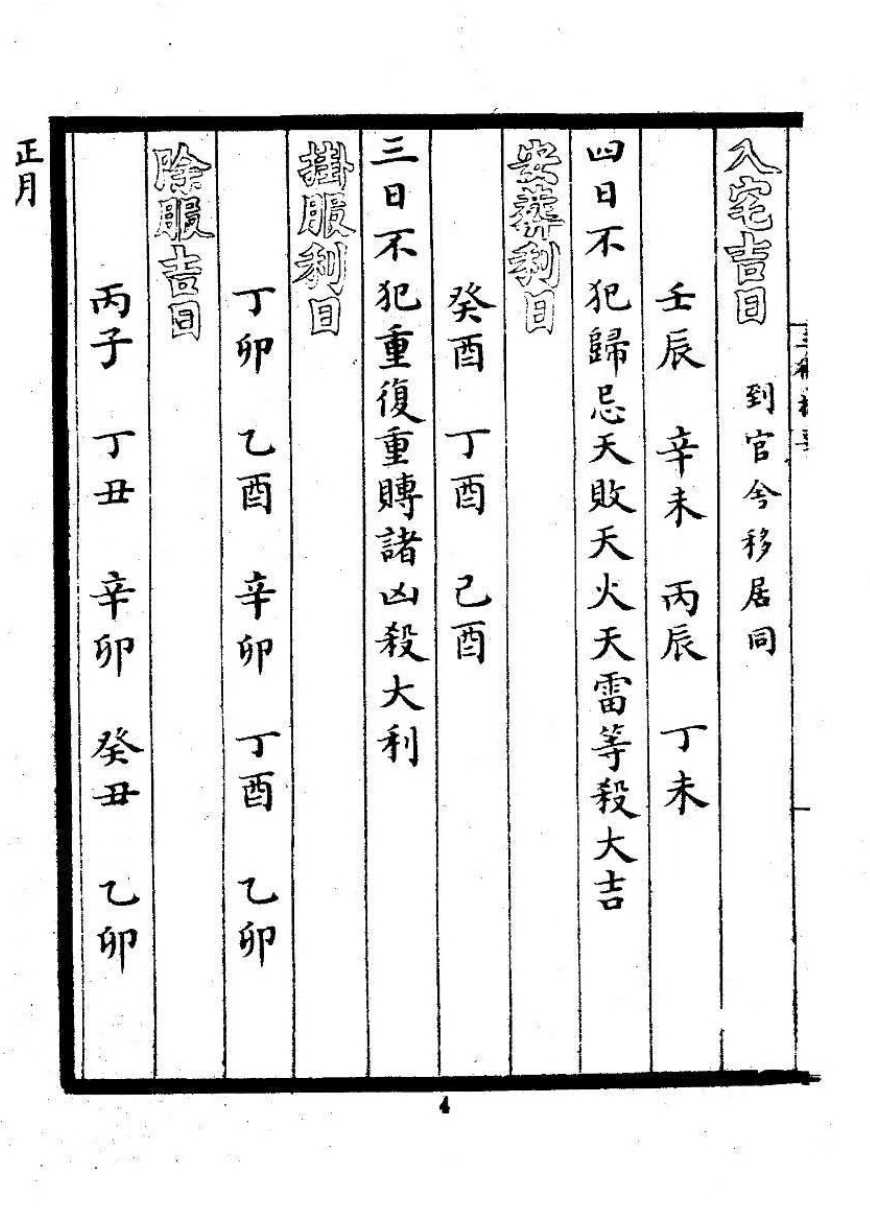 入宅吉日　到官兮移居同
壬辰　辛未　丙辰　丁未
四日不犯歸忌天敗天火天雷等殺大吉
安葬利日
癸酉　丁酉　己酉
三日不犯重復重賻諸凶殺大利
掛服利日
丁卯　乙酉　辛卯　丁酉　乙卯
除服吉日
丙子　丁丑　辛卯　癸丑　乙卯
正月
4